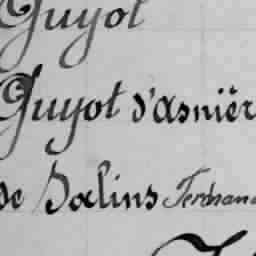 Guyot
Guyot d'Asnièr
de Salins Ferdinan